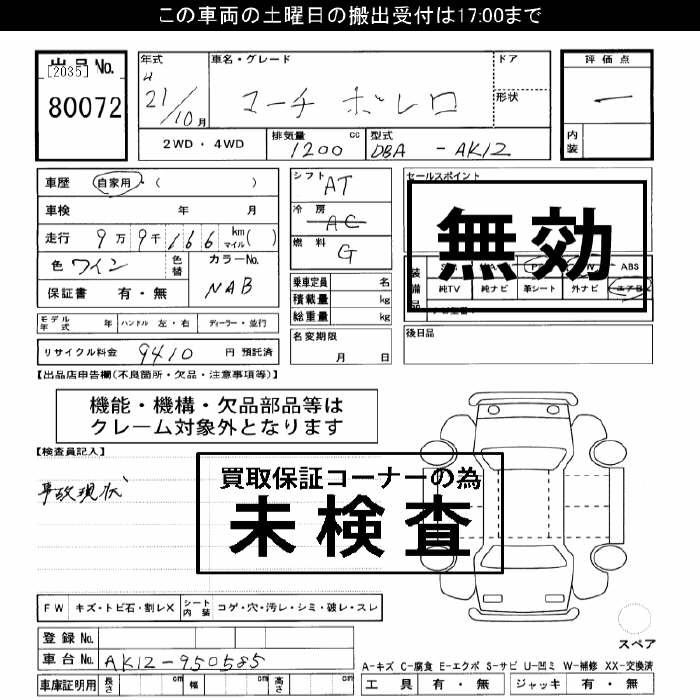 この車両の土曜日の搬出受付は17:00まで
出品No.
[2035]
80072
年式
H
21/10月
車名・グレード
マーチ ボレロ
ドア
形状
評価点
ー
内装
2WD・4WD
排気量 cc
1200
型式
DBA - AK12
車歴 自家用・( )
車検 年 月
走行 9万9千166 km マイル( )
色 ワイン
色替
カラーNo.
NAB
保証書 有・無
シフト AT
冷房 AC
燃料 G
乗車定員 名
積載量 kg
総重量 kg
名変期限
月 日
セールスポイント
無効
装備品
ABS
純TV 純ナビ 革シート 外ナビ エアB
後日品
モデル年式 年 ハンドル 左・右 ディーラー・並行
リサイクル料金 9410 円 預託済
【出品店申告欄(不良箇所・欠品・注意事項等)】
機能・機構・欠品部品等は
クレーム対象外となります
【検査員記入】
事故現状
買取保証コーナーの為
未検査
FW キズ・トビ石・割レX シート内装 コゲ・穴・汚レ・シミ・破レ・スレ
スペア
登録No.
車台No. AK12-950585
A-キズ C-腐食 E-エクボ S-サビ U-凹ミ W-補修 XX-交換済
車庫証明用 長さ cm 幅 cm 高さ cm
工具 有・無 ジャッキ 有・無